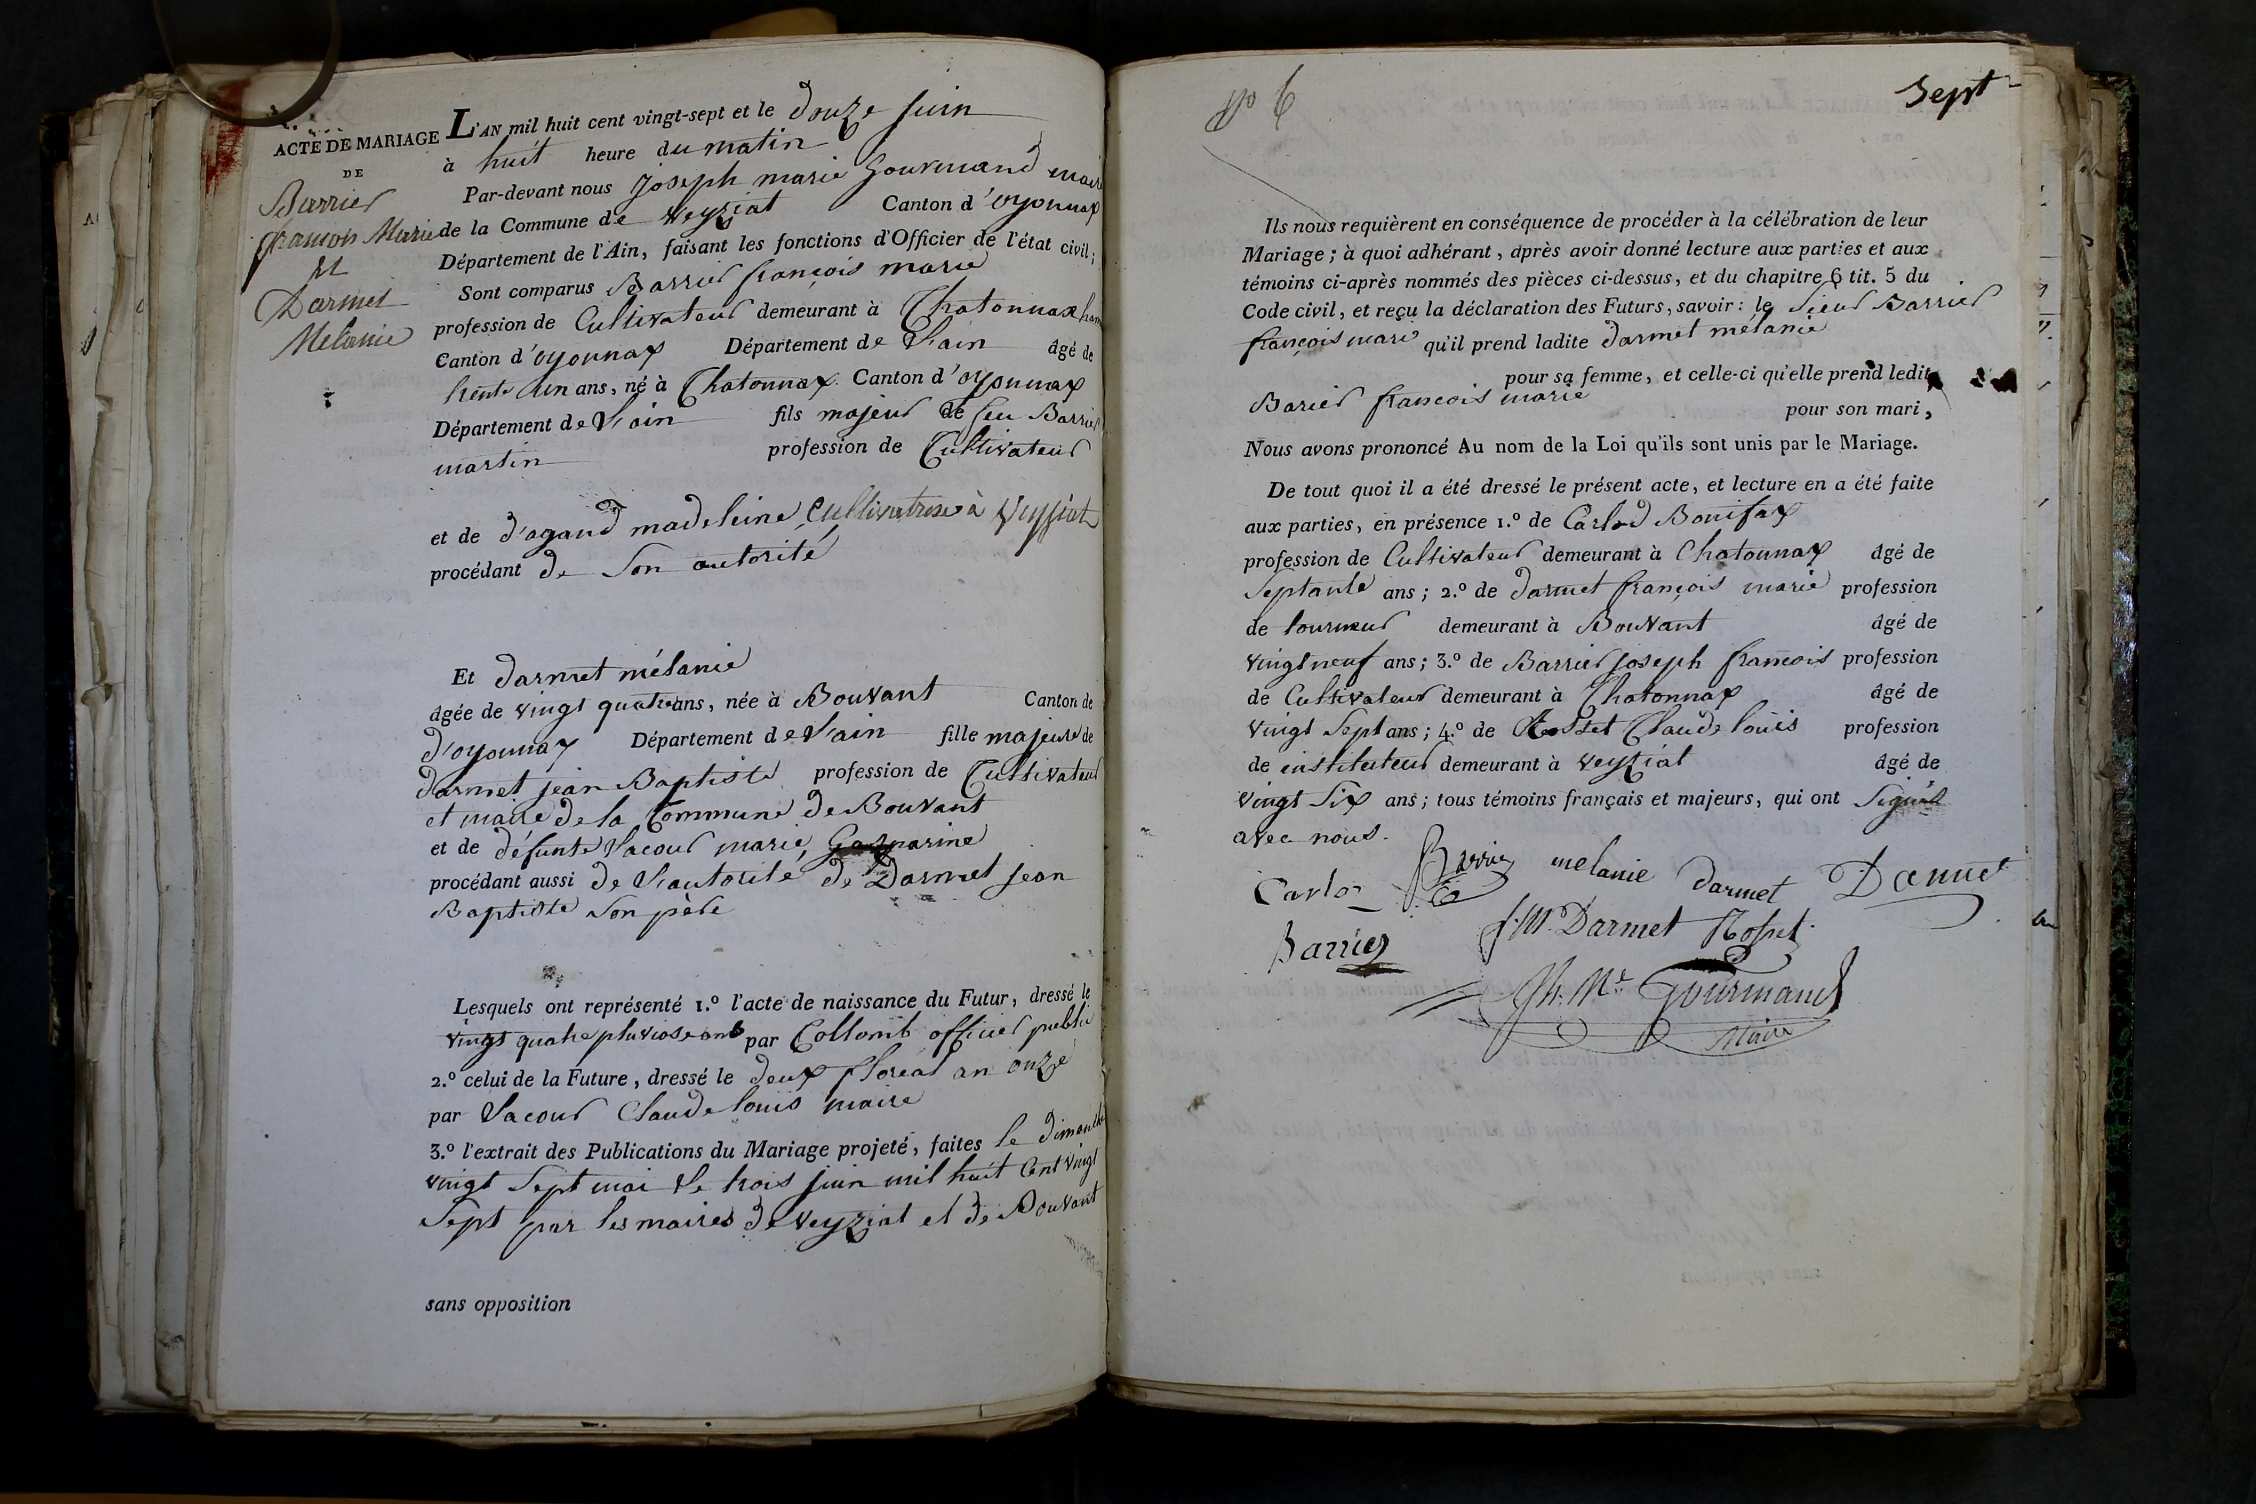 ACTE DE MARIAGE
DE
Barrier
françois Marie
Et
Darmet
Melanie
L'AN mil huit cent vingt-sept et le douze juin
à huit heure du matin
Par-devant nous joseph marie Gourmand maire
de la Commune de Veyziat Canton d'oyonnax
Département de l'Ain, faisant les fonctions d'Officier de l'état civil;
Sont comparus Barrier françois marie
profession de Cultivateur demeurant à Chatonnax
Canton d'oyonnax Département de l'ain âgé de
trente un ans, né à Chatonnax Canton d'oyonnax
Département de l'ain fils majeur de feu Barrier
martin profession de Cultivateur
et de d'agand madeleine Cultivatrice à Veyziat
procédant de Son autorité
Et darmet mélanie
âgée de vingt quatre ans, née à Bouvant Canton de
d'oyonnax Département de l'ain fille majeure de
darmet jean Baptiste profession de Cultivateur
et maire de la Commune de Bouvant
et de défunte Lacour marie
procédant aussi de l'autorité de Darmet jean
Baptiste son père
Lesquels ont représenté 1.º l'acte de naissance du Futur, dressé le
vingt quatre pluviose par Collomb officier public
2.º celui de la Future, dressé le deux floreal an onze
par Lacour Claude louis maire
3.º l'extrait des Publications du Mariage projeté, faites le dimanche
vingt Sept mai le trois juin mil huit Cent vingt
Sept par les maires de Veyziat et de Bouvant
sans opposition
Nº 6
Sept
Ils nous requièrent en conséquence de procéder à la célébration de leur
Mariage; à quoi adhérant, après avoir donné lecture aux parties et aux
témoins ci-après nommés des pièces ci-dessus, et du chapitre 6 tit. 5 du
Code civil, et reçu la déclaration des Futurs, savoir: le Sieur Barrier
françois marie qu'il prend ladite darmet mélanie
pour sa femme, et celle-ci qu'elle prend ledit
Barier françois marie
pour son mari,
Nous avons prononcé Au nom de la Loi qu'ils sont unis par le Mariage.
De tout quoi il a été dressé le présent acte, et lecture en a été faite
aux parties, en présence 1.º de Carlod Bonifax
profession de Cultivateur demeurant à Chatonnax âgé de
Septante ans; 2.º de darmet françois marie profession
de tourneur demeurant à Bouvant âgé de
vingt neuf ans; 3.º de Barrier joseph françois profession
de Cultivateur demeurant à Chatonnax âgé de
vingt Sept ans; 4.º de Rosset Claude louis profession
de instituteur demeurant à veyziat âgé de
vingt Six ans; tous témoins français et majeurs, qui ont Signé
avec nous.
Carloz Barrier melanie darmet Darmet
Barrier f. M. Darmet Rosset
Jh. Mie Gourmand
Maire